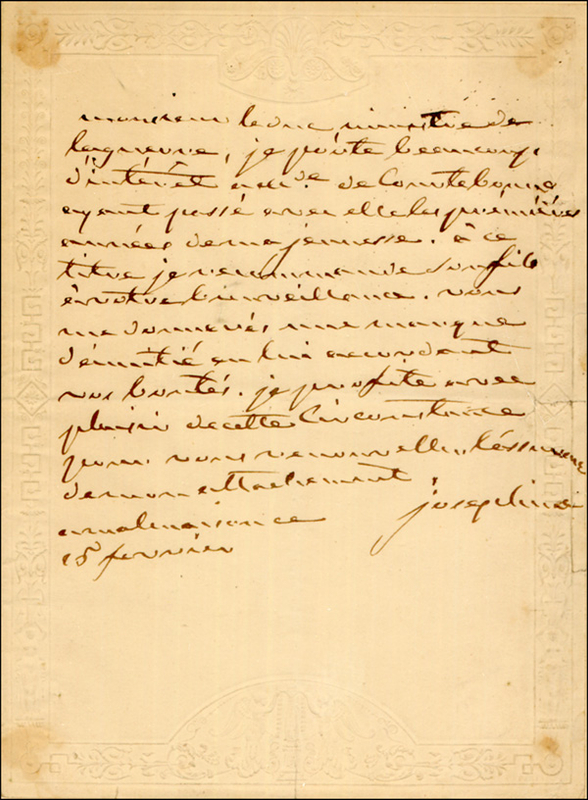 monsieur le duc ministre de
la guerre, je porte beaucoup
d'intérêt a md.e de Comtebonne
ayant passé avec elle les premières
années de ma jeunesse. à ce
titre je recommande son fils
à votre bienveillance. vous
me donnerés une marque
d'amitié en lui accordant
vos bontés. je profite avec
plaisir de cette circonstance
pour vous renouveller l'assurance
de mon attachement.
josephine
a malmaison ce
15 fevrier